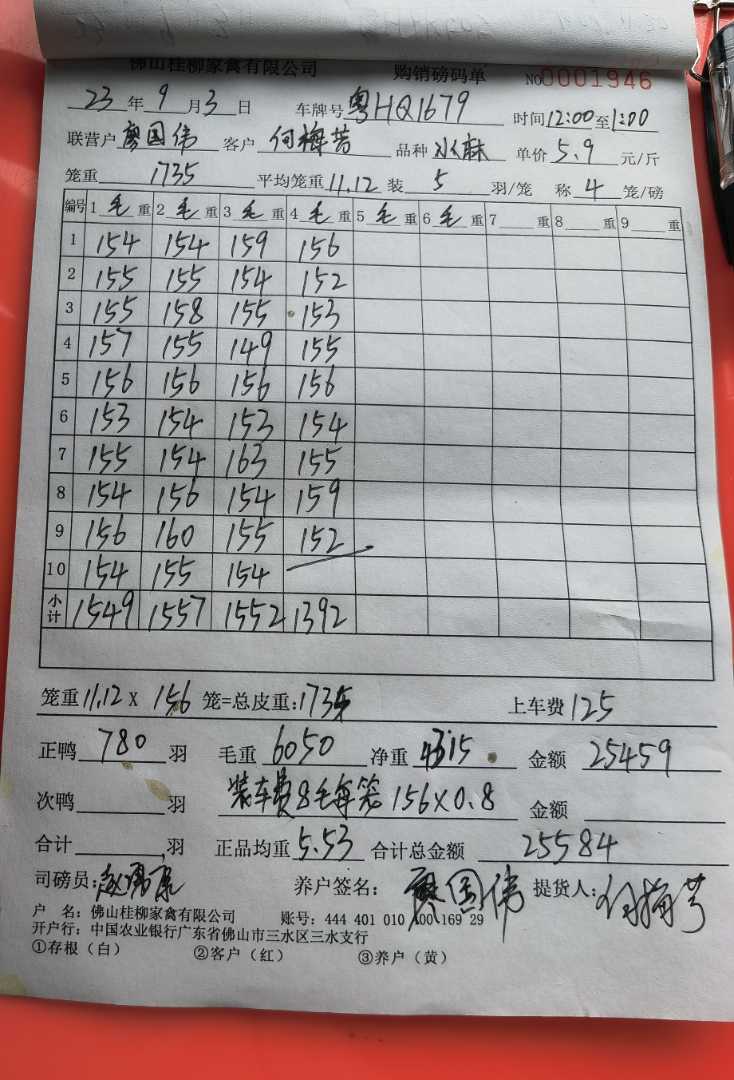 佛山桂柳家禽有限公司 购销磅码单 NO0001946
23年9月3日 车牌号粤HQ1679 时间12:00至1:00
联营户廖国伟 客户何梅芳 品种水麻 单价5.9元/斤
笼重1735 平均笼重11.12 装5羽/笼 称4笼/磅
编号 1毛重 2毛重 3毛重 4毛重 5毛重 6毛重 7重 8重 9重
1 154 154 159 156
2 155 155 154 152
3 155 158 155 153
4 157 155 149 155
5 156 156 156 156
6 153 154 153 154
7 155 154 163 155
8 154 156 154 159
9 156 160 155 152
10 154 155 154
小计 1549 1557 1552 1392
笼重11.12X156笼=总皮重:1735 上车费125
正鸭780羽 毛重6050 净重4315 金额25459
次鸭羽 装车费8毛每笼156×0.8 金额
合计羽 正品均重5.53 合计总金额25584
司磅员: 养户签名:廖国伟 提货人:何梅芳
户 名:佛山桂柳家禽有限公司 账号:444 401 010 400 169 29
开户行:中国农业银行广东省佛山市三水区三水支行
①存根(白) ②客户(红) ③养户(黄)